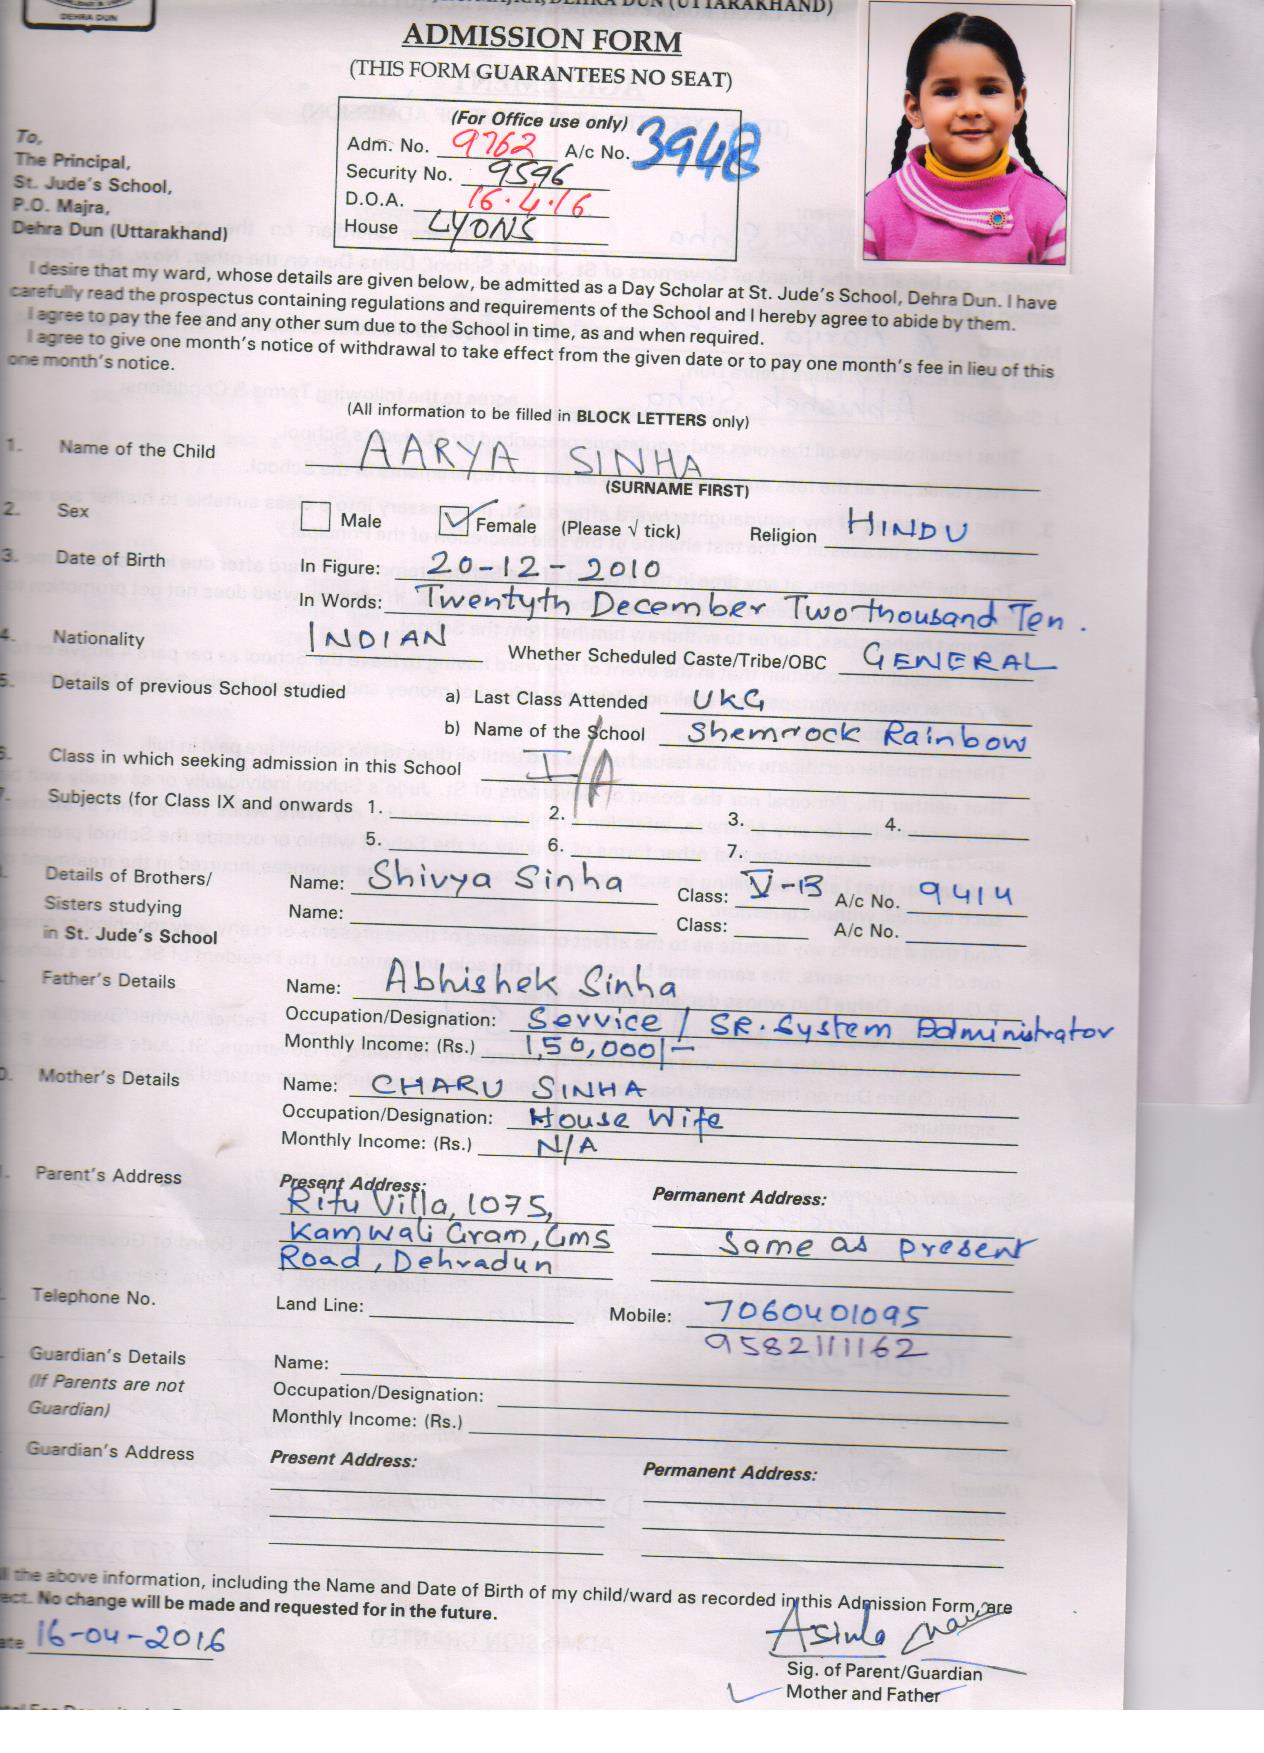 DEHRA DUN
DEHRA DUN (UTTARAKHAND)
ADMISSION FORM
(THIS FORM GUARANTEES NO SEAT)
(For Office use only)
Adm. No. 9762 A/c No. 3948
Security No. 9596
D.O.A. 16.4.16
House LYONS
To,
The Principal,
St. Jude's School,
P.O. Majra,
Dehra Dun (Uttarakhand)
I desire that my ward, whose details are given below, be admitted as a Day Scholar at St. Jude's School, Dehra Dun. I have
carefully read the prospectus containing regulations and requirements of the School and I hereby agree to abide by them.
I agree to pay the fee and any other sum due to the School in time, as and when required.
I agree to give one month's notice of withdrawal to take effect from the given date or to pay one month's fee in lieu of this
one month's notice.
(All information to be filled in BLOCK LETTERS only)
1. Name of the Child AARYA SINHA
(SURNAME FIRST)
2. Sex Male Female (Please √ tick) Religion HINDU
3. Date of Birth In Figure: 20-12-2010
In Words: Twentyth December Two thousand Ten.
4. Nationality INDIAN Whether Scheduled Caste/Tribe/OBC GENERAL
5. Details of previous School studied a) Last Class Attended UKG
b) Name of the School Shemrock Rainbow
6. Class in which seeking admission in this School I/A
7. Subjects (for Class IX and onwards 1. 2. 3. 4.
5. 6. 7.
Details of Brothers/ Name: Shivya Sinha Class: V-B A/c No. 9414
Sisters studying Name: Class: A/c No.
in St. Jude's School
Father's Details Name: Abhishek Sinha
Occupation/Designation: Service / SR. System Administrator
Monthly Income: (Rs.) 1,50,000/-
0. Mother's Details Name: CHARU SINHA
Occupation/Designation: House Wife
Monthly Income: (Rs.) N/A
Parent's Address Present Address: Permanent Address:
Ritu Villa, 1075,
Kamwali Gram, GMS Same as present
Road, Dehradun
Telephone No. Land Line: Mobile: 7060401095
9582111162
Guardian's Details Name:
(If Parents are not Occupation/Designation:
Guardian) Monthly Income: (Rs.)
Guardian's Address Present Address: Permanent Address:
the above information, including the Name and Date of Birth of my child/ward as recorded in this Admission Form, are
No change will be made and requested for in the future.
16-04-2016
Asinha
Sig. of Parent/Guardian
Mother and Father